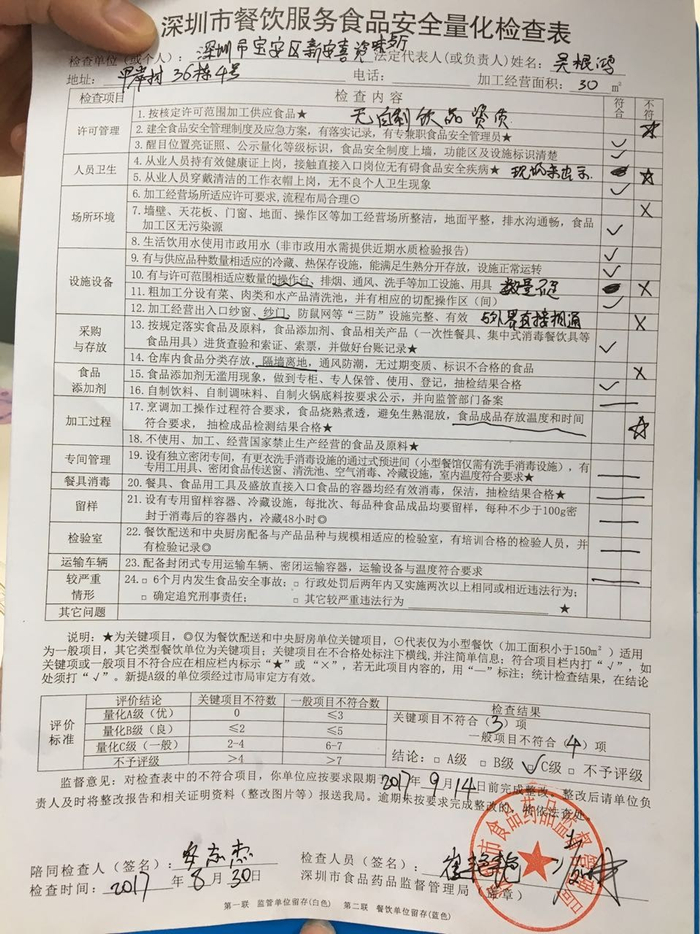 深圳市餐饮服务食品安全量化检查表
检查单位(或个人): 深圳市宝安区新安喜 法定代表人(或负责人)姓名: 吴根鸿
地址: 甲岸村36栋4号 电话: 加工经营面积: 30 ㎡
检查项目 检查内容 符合 不符
许可管理
1. 按核定许可范围加工供应食品★ 无自制饮品资质 ★
2. 建全食品安全管理制度及应急方案,有落实记录,有专兼职食品安全管理员★
3. 醒目位置亮证照、公示量化等级标识,食品安全制度上墙,功能区及设施标识清楚 ✓
人员卫生
4. 从业人员持有效健康证上岗,接触直接入口岗位无有碍食品安全疾病★ 现场未出示 ★
5. 从业人员穿戴清洁的工作衣帽上岗,无不良个人卫生现象 ✓
场所环境
6. 加工经营场所适应许可要求,流程布局合理⊙ X
7. 墙壁、天花板、门窗、地面、操作区等加工经营场所整洁,地面平整,排水沟通畅,食品
加工区无污染源 ✓
8. 生活饮用水使用市政用水(非市政用水需提供近期水质检验报告) ✓
设施设备
9. 有与供应品种数量相适应的冷藏、热保存设施,能满足生熟分开存放,设施正常运转 ✓
10. 有与许可范围相适应数量的操作台、排烟、通风、洗手等加工设施、用具 数量不足 X
11. 粗加工分设有菜、肉类和水产品清洗池,并有相应的切配操作区(间) ✓
12. 加工经营出入口纱窗、纱门、防鼠网等“三防”设施完整、有效 与外界直接相通 X
采购与存放
13. 按规定落实食品及原料,食品添加剂、食品相关产品(一次性餐具、集中式消毒餐饮具等
食品用具)进货查验和索证、索票,并做好台账记录★ ✓
14. 仓库内食品分类存放,隔墙离地,通风防潮,无过期变质、标识不合格的食品 X
食品添加剂
15. 食品添加剂无滥用现象,做到专柜、专人保管、使用、登记,抽检结果合格★ ✓
16. 自制饮料、自制调味料、自制火锅底料按要求公示,并向监管部门备案 —
加工过程
17. 烹调加工操作过程符合要求,食品烧熟煮透,避免生熟混放,食品成品存放温度和时间
符合要求,抽检成品检测结果合格★ ★
18. 不使用、加工、经营国家禁止生产经营的食品及原料★
专间管理
19. 设有独立密闭专间,有更衣洗手消毒设施的通过式预进间(小型餐馆仅需有洗手消毒设施),有
专用工用具、密闭食品传送窗、清洗池、空气消毒、冷藏设施,室内温度符合要求★ —
餐具消毒
20. 餐具、食品用工具及盛放直接入口食品的容器均经有效消毒,保洁,抽检结果合格★ —
留样
21. 设有专用留样容器、冷藏设施,每批次、每品种食品成品均要留样,每种不少于100g密
封于消毒后的容器内,冷藏48小时◎ —
检验室
22. 餐饮配送和中央厨房配备与产品品种与规模相适应的检验室,有培训合格的检验人员,并
有检验记录◎ —
运输车辆
23. 配备封闭式专用运输车辆、密闭运输容器,运输设备与温度符合要求 —
较严重情形
24. □ 6个月内发生食品安全事故; □ 行政处罚后两年内又实施两次以上相同或相近违法行为;
□ 确定追究刑事责任; □ 其它较严重违法行为 ★
其它问题
说明:★为关键项目,◎仅为餐饮配送和中央厨房单位关键项目,⊙代表仅为小型餐饮(加工面积小于150㎡)适用
为一般项目,其它类型餐饮单位为关键项目;关键项目在不合格处标注下横线,并注简单信息;符合项目栏内打“√”,如
关键项或一般项目不符合应在相应栏内标示“★”或“×”,若无此项目内容的,用“—”标注;统计检查结果,在结论
处须打“√”。新提A级的单位须经过市局审定方有效。
评价标准
评价结论 关键项目不符数 一般项目不符合数 检查结果
量化A级(优) 0 ≤3 关键项目不符合(3)项
量化B级(良) ≤2 ≤5 一般项目不符合(4)项
量化C级(一般) 2-4 6-7 结论:□ A级 □ B级 ☑ C级 □ 不予评级
不予评级 >4 >7
监督意见:对检查表中的不符合项目,你单位应按要求限期2017年9月14日前完成整改。整改后请单位负
责人及时将整改报告和相关证明资料(整改图片等)报送我局。逾期未按要求完成整改的,将依法查处。
陪同检查人(签名): 检查人员(签名):
检查时间: 2017年8月30日 深圳市食品药品监督管理局(盖章)
第一联 监管单位留存(白色) 第二联 餐饮单位留存(蓝色)